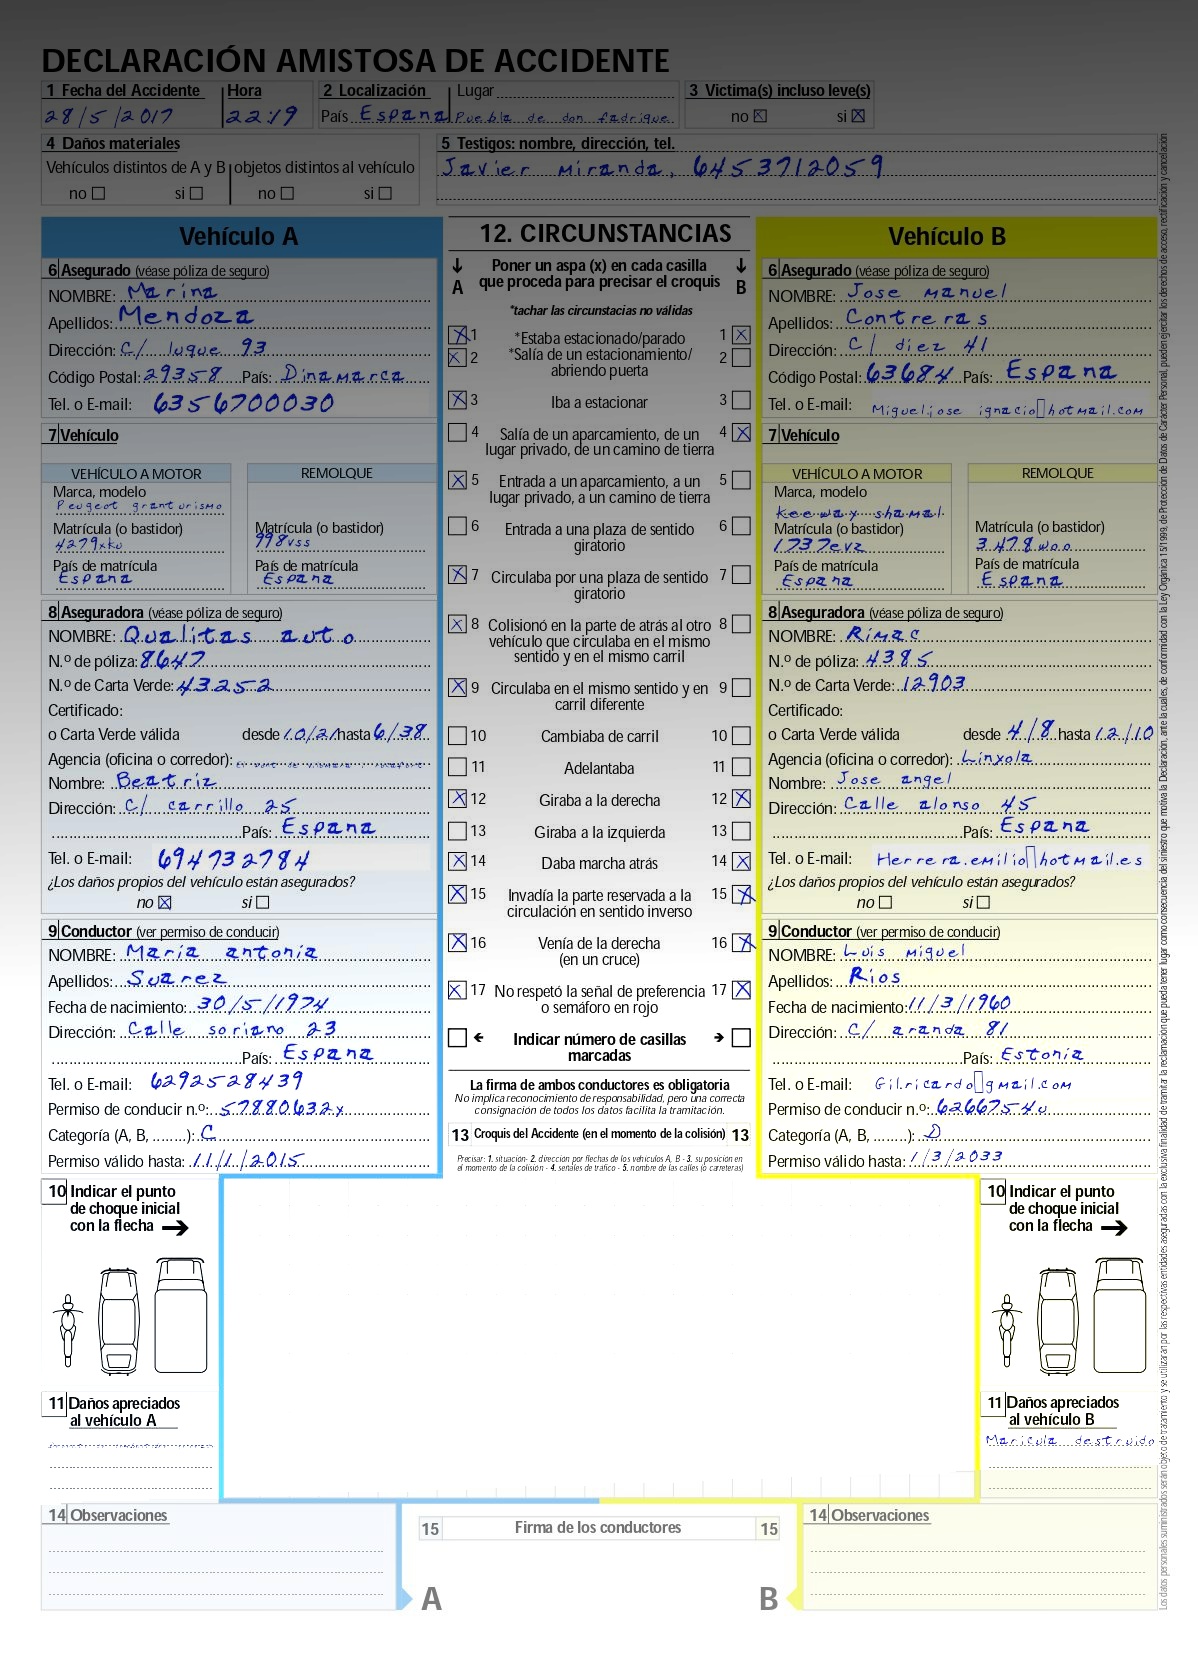 DECLARACIÓN AMISTOSA DE ACCIDENTE
1 Fecha del Accidente Hora 2 Localización Lugar 3 Victima(s) incluso leve(s)
28/5/2017 22:19 País Espana Puebla de don fadrique no ☒ si ☒
4 Daños materiales
Vehículos distintos de A y B objetos distintos al vehículo
no ☐ si ☐ no ☐ si ☐
5 Testigos: nombre, dirección, tel.
Javier Miranda, 6453712059
Vehículo A
6 Asegurado (véase póliza de seguro)
NOMBRE: Marina
Apellidos: Mendoza
Dirección: C/ luque 93
Código Postal: 29358 País: Dinamarca
Tel. o E-mail: 6356700030
7 Vehículo
VEHÍCULO A MOTOR REMOLQUE
Marca, modelo
Peugeot granturismo
Matrícula (o bastidor) Matrícula (o bastidor)
4279xku 998vss
País de matrícula País de matrícula
Espana Espana
8 Aseguradora (véase póliza de seguro)
NOMBRE: Qualitas auto
N.º de póliza: 8647
N.º de Carta Verde: 43252
Certificado:
o Carta Verde válida desde 10/21 hasta 6/38
Agencia (oficina o corredor):
Nombre: Beatriz
Dirección: C/ carrillo 25
País: Espana
Tel. o E-mail: 694732784
¿Los daños propios del vehículo están asegurados?
no ☒ si ☐
9 Conductor (ver permiso de conducir)
NOMBRE: María antonia
Apellidos: Suarez
Fecha de nacimiento: 30/5/1974
Dirección: Calle soriano 23
País: Espana
Tel. o E-mail: 6292528439
Permiso de conducir n.º: 57880632x
Categoría (A, B, ........): C
Permiso válido hasta: 11/1/2015
12. CIRCUNSTANCIAS
A Poner un aspa (x) en cada casilla B
que proceda para precisar el croquis
*tachar las circunstacias no válidas
☒ 1 *Estaba estacionado/parado 1 ☒
☒ 2 *Salía de un estacionamiento/ 2 ☐
abriendo puerta
☒ 3 Iba a estacionar 3 ☐
☐ 4 Salía de un aparcamiento, de un 4 ☒
lugar privado, de un camino de tierra
☒ 5 Entrada a un aparcamiento, a un 5 ☐
lugar privado, a un camino de tierra
☐ 6 Entrada a una plaza de sentido 6 ☐
giratorio
☒ 7 Circulaba por una plaza de sentido 7 ☐
giratorio
☒ 8 Colisionó en la parte de atrás al otro 8 ☐
vehículo que circulaba en el mismo
sentido y en el mismo carril
☒ 9 Circulaba en el mismo sentido y en 9 ☐
carril diferente
☐ 10 Cambiaba de carril 10 ☐
☐ 11 Adelantaba 11 ☐
☒ 12 Giraba a la derecha 12 ☒
☐ 13 Giraba a la izquierda 13 ☐
☒ 14 Daba marcha atrás 14 ☒
☒ 15 Invadía la parte reservada a la 15 ☒
circulación en sentido inverso
☒ 16 Venía de la derecha 16 ☒
(en un cruce)
☒ 17 No respetó la señal de preferencia 17 ☒
o semáforo en rojo
☐ ← Indicar número de casillas → ☐
marcadas
La firma de ambos conductores es obligatoria
No implica reconocimiento de responsabilidad, pero una correcta
consignación de todos los datos facilita la tramitación.
13 Croquis del Accidente (en el momento de la colisión) 13
Precisar: 1. situación- 2. dirección por flechas de los vehículos A, B - 3. su posición en
el momento de la colisión - 4. señales de tráfico - 5. nombre de las calles (o carreteras)
Vehículo B
6 Asegurado (véase póliza de seguro)
NOMBRE: Jose manuel
Apellidos: Contreras
Dirección: C/ diez 41
Código Postal: 63684 País: Espana
Tel. o E-mail: Miguel.jose ignacio▯hotmail.com
7 Vehículo
VEHÍCULO A MOTOR REMOLQUE
Marca, modelo
Keeway shamal
Matrícula (o bastidor) Matrícula (o bastidor)
1737evz 3478woo
País de matrícula País de matrícula
Espana Espana
8 Aseguradora (véase póliza de seguro)
NOMBRE: Rimac
N.º de póliza: 4385
N.º de Carta Verde: 12903
Certificado:
o Carta Verde válida desde 4/8 hasta 12/10
Agencia (oficina o corredor): Linxola
Nombre: Jose angel
Dirección: Calle alonso 45
País: Espana
Tel. o E-mail: Herrera.emilio▯hotmail.es
¿Los daños propios del vehículo están asegurados?
no ☐ si ☐
9 Conductor (ver permiso de conducir)
NOMBRE: Luis miguel
Apellidos: Rios
Fecha de nacimiento: 11/3/1960
Dirección: C/ aranda 81
País: Estonia
Tel. o E-mail: Gil.ricardo▯gmail.com
Permiso de conducir n.º: 62667540
Categoría (A, B, ........): D
Permiso válido hasta: 1/3/2033
10 Indicar el punto
de choque inicial
con la flecha →
11 Daños apreciados
al vehículo A
10 Indicar el punto
de choque inicial
con la flecha →
11 Daños apreciados
al vehículo B
Maricula destruido
14 Observaciones
15 Firma de los conductores 15
A B
14 Observaciones
Los datos personales suministrados serán objeto de tratamiento y se utilizaran por las respectivas entidades aseguradas con la exclusiva finalidad de tramitar la reclamación que pueda tener lugar como consecuencia del siniestro que motiva la Declaración, ante la cuales, de conformidad con la Ley Orgánica 15/1999, de Protección de Datos de Carácter Personal, pueden ejercitar los derechos de acceso, rectificación y cancelación